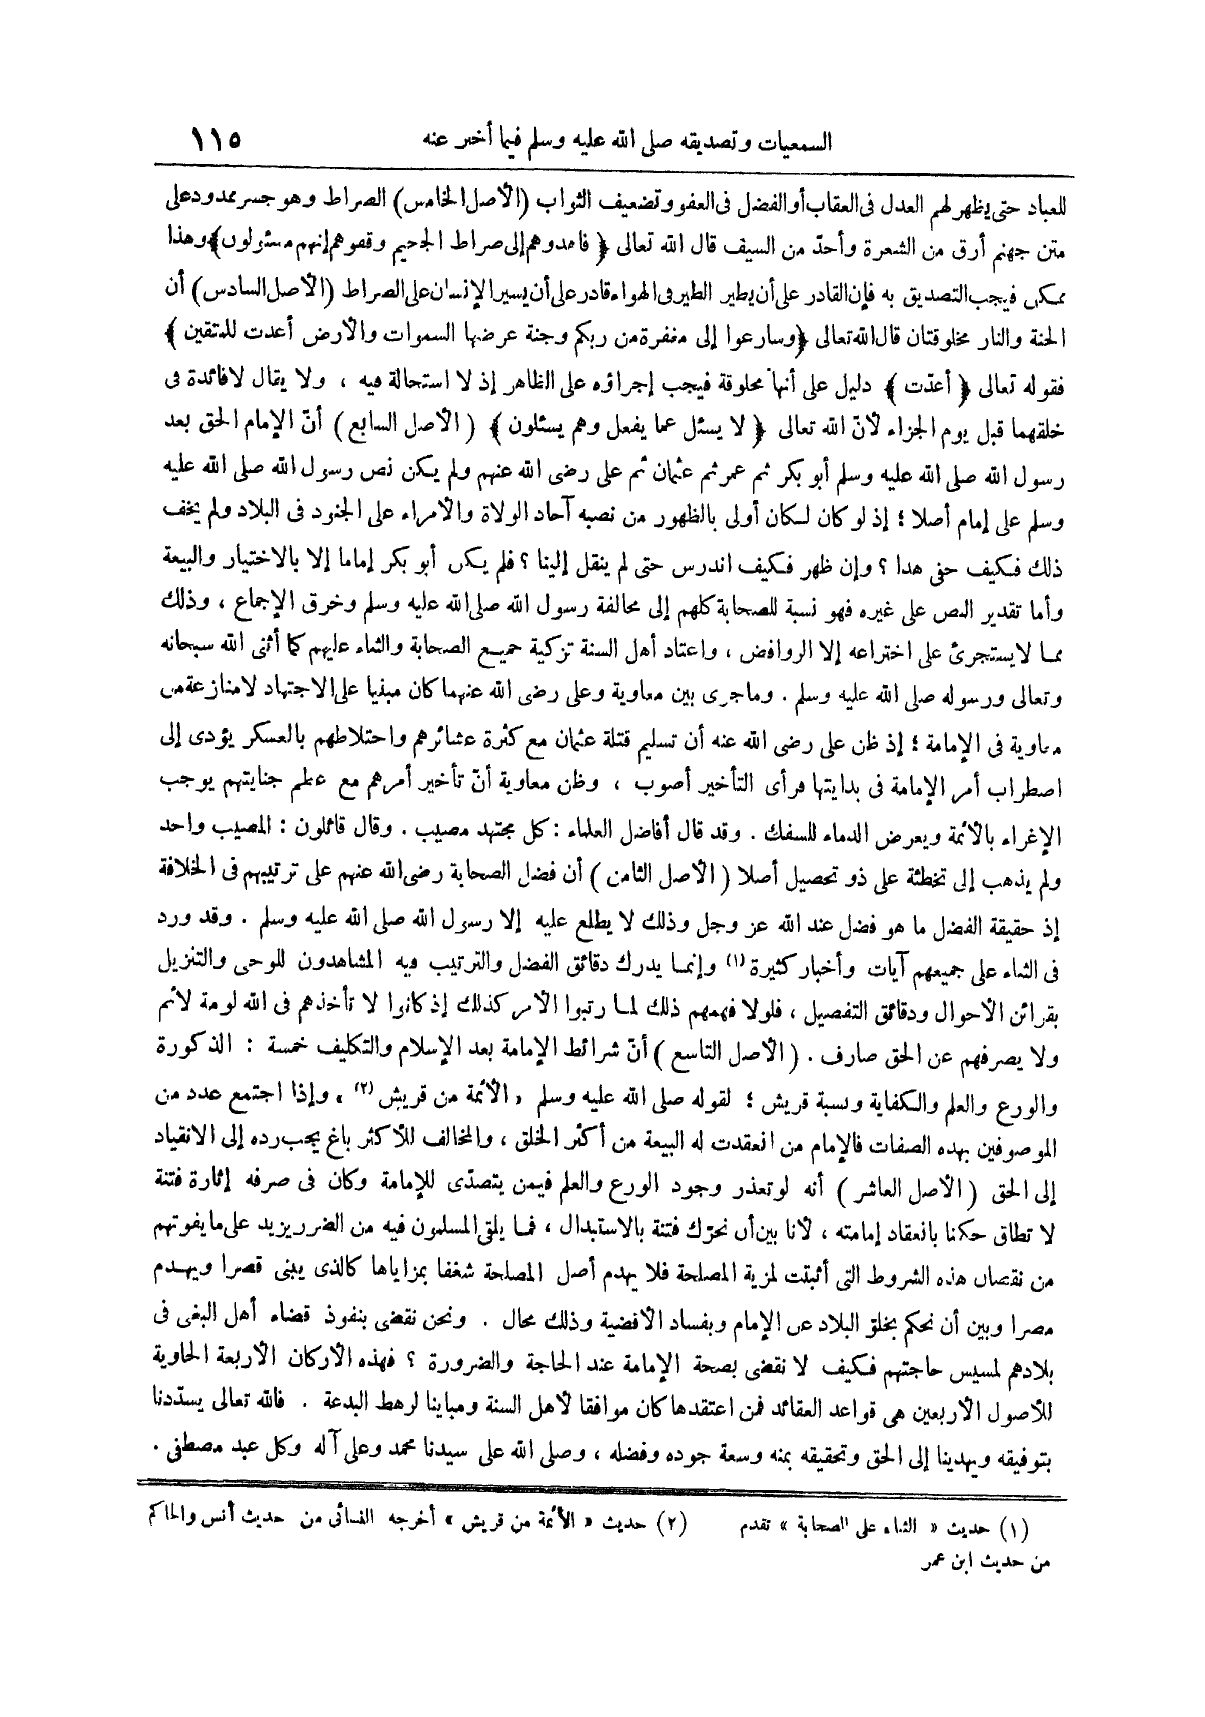 السمعيات وتصديقه صلى الله عليه وسلم فيما أخبر عنه ١١٥
للعباد حتى يظهر لهم العدل فى العقاب أو الفضل فى العفو وتضعيف الثواب (الأصل الخامس) الصراط وهو جسر ممدود على
متن جهنم أرق من الشعرة وأحدّ من السيف قال الله تعالى ﴿ فاهدوهم إلى صراط الجحيم وقفوهم إنهم مسئولون ﴾ وهذا
ممكن فيجب التصديق به فإن القادر على أن يطير الطير فى الهواء قادر على أن يسير الإنسان على الصراط (الأصل السادس) أن
الجنة والنار مخلوقتان قال الله تعالى ﴿ وسارعوا إلى مغفرة من ربكم وجنة عرضها السموات والأرض أعدت للمتقين ﴾
فقوله تعالى ﴿ أعدّت ﴾ دليل على أنها مخلوقة فيجب إجراؤه على الظاهر إذ لا استحالة فيه ، ولا يقال لا فائدة فى
خلقهما قبل يوم الجزاء لأنّ الله تعالى ﴿ لا يسئل عما يفعل وهم يسئلون ﴾ (الأصل السابع) أنّ الإمام الحق بعد
رسول الله صلى الله عليه وسلم أبو بكر ثم عمر ثم عثمان ثم على رضى الله عنهم ولم يكن نص رسول الله صلى الله عليه
وسلم على إمام أصلا ؛ إذ لو كان لكان أولى بالظهور من نصبه آحاد الولاة والأمراء على الجنود فى البلاد ولم يخف
ذلك فكيف خفى هذا ؟ وإن ظهر فكيف اندرس حتى لم ينقل إلينا ؟ فلم يكن أبو بكر إماما إلا بالاختيار والبيعة
وأما تقدير النص على غيره فهو نسبة للصحابة كلهم إلى مخالفة رسول الله صلى الله عليه وسلم وخرق الإجماع ، وذلك
مما لا يستجرئ على اختراعه إلا الروافض ، واعتاد أهل السنة تزكية جميع الصحابة والثناء عليهم كما أثنى الله سبحانه
وتعالى ورسوله صلى الله عليه وسلم . وما جرى بين معاوية وعلى رضى الله عنهما كان مبنيا على الاجتهاد لا منازعة من
معاوية فى الإمامة ؛ إذ ظن على رضى الله عنه أن تسليم قتلة عثمان مع كثرة عشائرهم واختلاطهم بالعسكر يؤدى إلى
اضطراب أمر الإمامة فى بدايتها فرأى التأخير أصوب ، وظن معاوية أنّ تأخير أمرهم مع عظم جنايتهم يوجب
الإغراء بالأئمة ويعرض الدماء للسفك . وقد قال أفاضل العلماء : كل مجتهد مصيب . وقال قائلون : المصيب واحد
ولم يذهب إلى تخطئة على ذو تحصيل أصلا (الأصل الثامن) أن فضل الصحابة رضى الله عنهم على ترتيبهم فى الخلافة
إذ حقيقة الفضل ما هو فضل عند الله عز وجل وذلك لا يطلع عليه إلا رسول الله صلى الله عليه وسلم . وقد ورد
فى الثناء على جميعهم آيات وأخبار كثيرة (١) وإنما يدرك دقائق الفضل والترتيب فيه المشاهدون للوحى والتنزيل
بقرائن الأحوال ودقائق التفصيل ، فلولا فهمهم ذلك لما رتبوا الأمر كذلك إذ كانوا لا تأخذهم فى الله لومة لائم
ولا يصرفهم عن الحق صارف . (الأصل التاسع) أنّ شرائط الإمامة بعد الإسلام والتكليف خمسة : الذكورة
والورع والعلم والكفاية ونسبة قريش ؛ لقوله صلى الله عليه وسلم « الأئمة من قريش (٢) » وإذا اجتمع عدد من
الموصوفين بهذه الصفات فالإمام من انعقدت له البيعة من أكثر الخلق ، والمخالف للأكثر باغ يجب رده إلى الانقياد
إلى الحق (الأصل العاشر) أنه لو تعذر وجود الورع والعلم فيمن يتصدّى للإمامة وكان فى صرفه إثارة فتنة
لا تطاق حكمنا بانعقاد إمامته ، لأنا بين أن نحرّك فتنة بالاستبدال ، فما يلقى المسلمون فيه من الضرر يزيد على ما يفوتهم
من نقصان هذه الشروط التى أثبتت لمزية المصلحة فلا يهدم أصل المصلحة شغفا بمزاياها كالذى يبنى قصرا ويهدم
مصرا وبين أن نحكم بخلق البلاد عن الإمام وبفساد الأقضية وذلك محال . ونحن نقضى بنفوذ قضاء أهل البغى فى
بلادهم لمسيس حاجتهم فكيف لا نقضى بصحة الإمامة عند الحاجة والضرورة ؟ فهذه الأركان الأربعة الحاوية
للأصول الأربعين هى قواعد العقائد فمن اعتقدها كان موافقا لأهل السنة ومباينا لرهط البدعة . فالله تعالى يسدّدنا
بتوفيقه ويهدينا إلى الحق وتحقيقه بمنه وسعة جوده وفضله ، وصلى الله على سيدنا محمد وعلى آله وكل عبد مصطفى .
(١) حديث « الثناء على الصحابة » تقدم (٢) حديث « الأئمة من قريش » أخرجه النسائى من حديث أنس والحاكم
من حديث ابن عمر